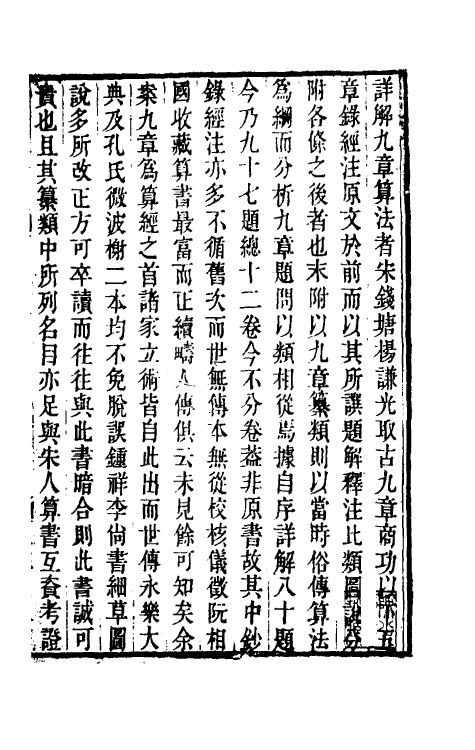 詳解九章算法者宋錢塘楊謙光取古九章商功以五
章錄經注原文於前而以其所譔題解釋注比類圖說分
附各條之後者也末附以九章纂類則以當時俗傳算法
為綱而分析九章題問以類相從焉據自序詳解八十題
今乃九十七題總十二卷今不分卷葢非原書故其中鈔
錄經注亦多不循舊次而世無傳本無從校核儀徵阮相
國收藏算書最富而正續疇人傳俱云未見餘可知矣余
案九章為算經之首諸家立術皆自此出而世傳永樂大
典及孔氏微波榭二本均不免脫誤鍾祥李尚書細草圖
說多所改正方可卒讀而往往與此書暗合則此書誠可
貴也且其纂類中所列名目亦足與宋人算書互叅考證